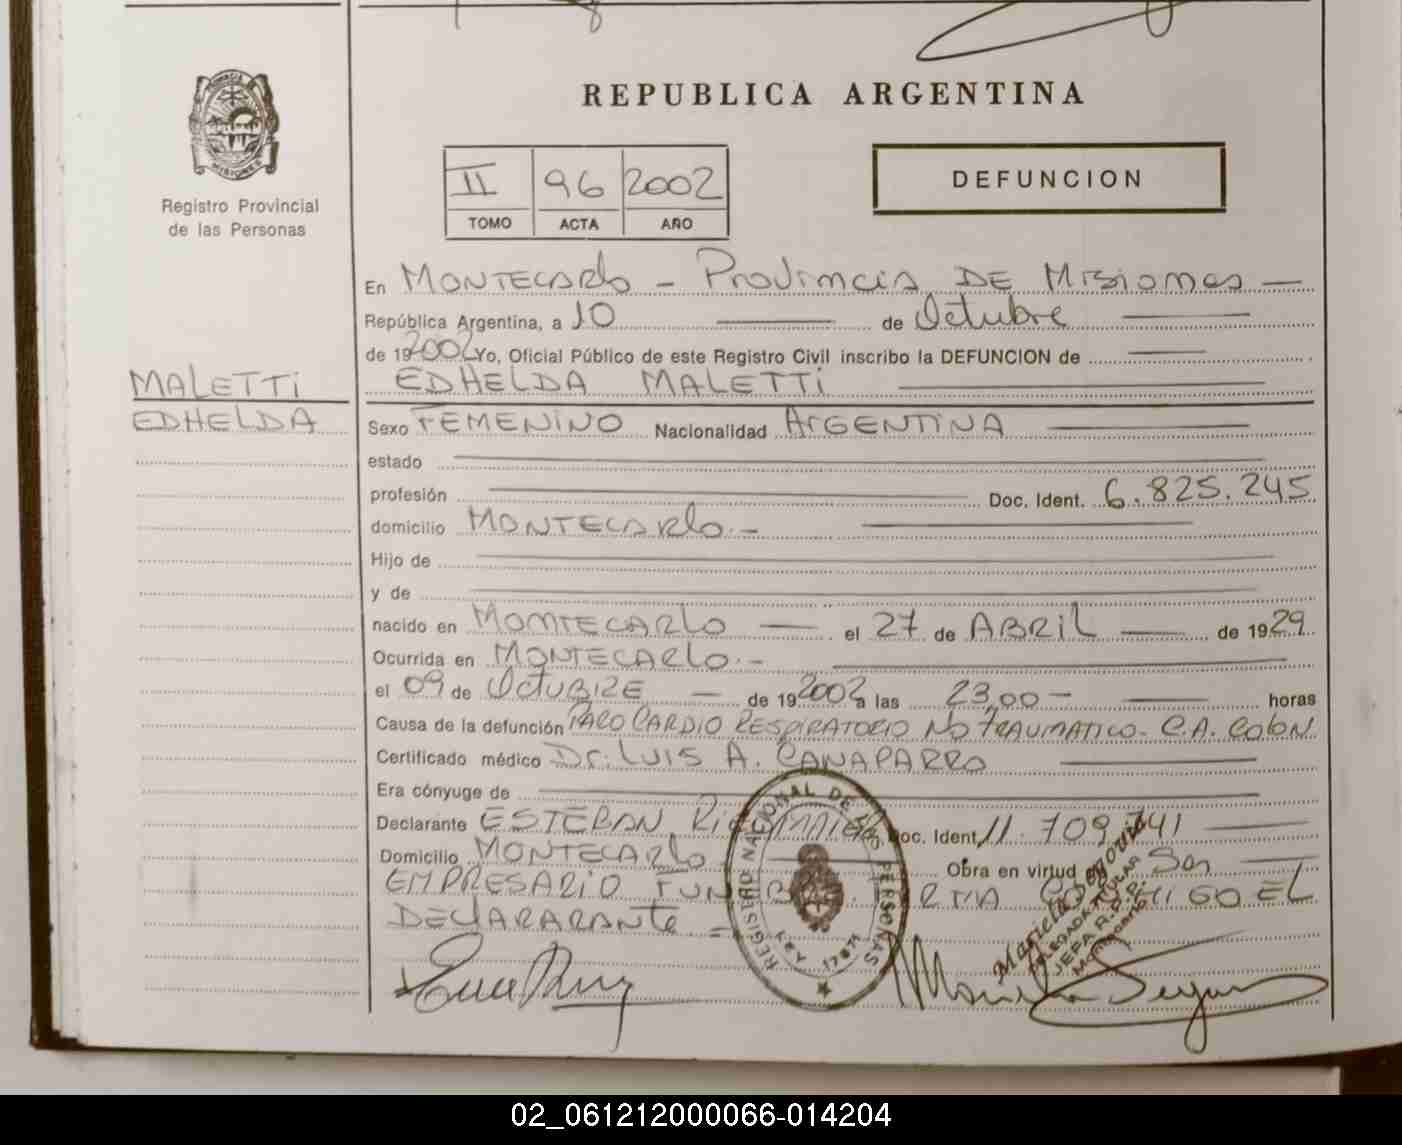 PROVINCIA
MISIONES
Registro Provincial
de las Personas
REPUBLICA ARGENTINA
II 96 2002
TOMO ACTA AÑO
DEFUNCION
En MONTECARLO - PROVINCIA DE MISIONES -
República Argentina, a 10 de Octubre
de 192002 Yo, Oficial Público de este Registro Civil inscribo la DEFUNCION de
MALETTI
EDHELDA
EDHELDA MALETTI
Sexo FEMENINO Nacionalidad ARGENTINA
estado
profesión Doc. Ident. 6.825.245
domicilio MONTECARLO.-
Hijo de
y de
nacido en MONTECARLO el 27 de ABRIL de 1929
Ocurrida en MONTECARLO.-
el 09 de OCTUBRE - de 192002 a las 23,00- horas
Causa de la defunción PARO CARDIO RESPIRATORIO NO TRAUMATICO- C.A. COLON.
Certificado médico Dr. LUIS A. CANAPARRO
Era cónyuge de
Declarante ESTEBAN Doc. Ident. 11.709.741
Domicilio MONTECARLO Obra en virtud
EMPRESARIO EL
DECLARARANTE =
REGISTRO NACIONAL DE LAS PERSONAS
LEY 17671
DELEGADA TITULAR
02_061212000066-014204